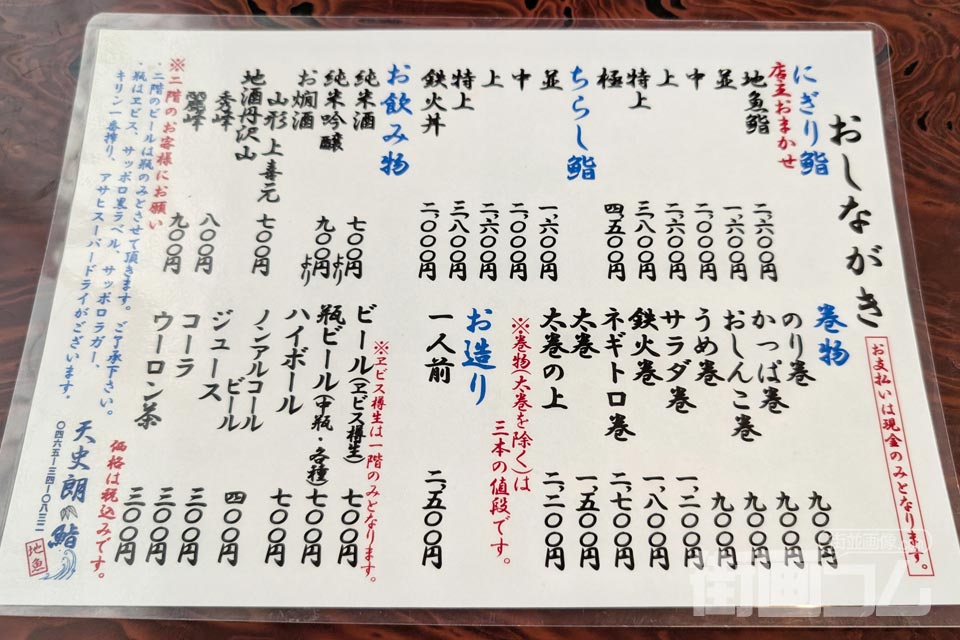 おしながき
お支払いは現金のみとなります。
にぎり鮨
店主おまかせ
地魚鮨 二、六〇〇円
並 一、六〇〇円
中 二、〇〇〇円
上 二、六〇〇円
特上 三、八〇〇円
極 四、五〇〇円
ちらし鮨
並 一、六〇〇円
中 二、〇〇〇円
上 二、六〇〇円
特上 三、八〇〇円
鉄火丼 二、〇〇〇円
巻物
のり巻 九〇〇円
かっぱ巻 九〇〇円
おしんこ巻 九〇〇円
うめ巻 九〇〇円
サラダ巻 一、二〇〇円
鉄火巻 一、八〇〇円
ネギトロ巻 二、七〇〇円
太巻 一、五〇〇円
太巻の上 二、二〇〇円
※巻物(太巻を除く)は
三本の値段です。
お造り
一人前 二、五〇〇円
お飲み物
純米酒 七〇〇円より
純米吟醸 九〇〇円より
お燗酒
山形 上喜元 七〇〇円
地酒丹沢山
秀峰 八〇〇円
麗峰 九〇〇円
※ヱビス樽生は一階のみとなります。
ビール(ヱビス樽生) 七〇〇円
瓶ビール(中瓶・各種) 七〇〇円
ハイボール 七〇〇円
ノンアルコール
ビール 四〇〇円
ジュース 三〇〇円
コーラ 三〇〇円
ウーロン茶 三〇〇円
※二階のお客様にお願い
・二階のビールは瓶のみとさせて頂きます。ご了承下さい。
・瓶はヱビス、サッポロ黒ラベル、サッポロラガー、
キリン一番搾り、アサヒスーパードライがございます。
価格は税込みです。
天史朗鮨
〇四六五―三四―〇八三二
地魚
街並画像
街画コム